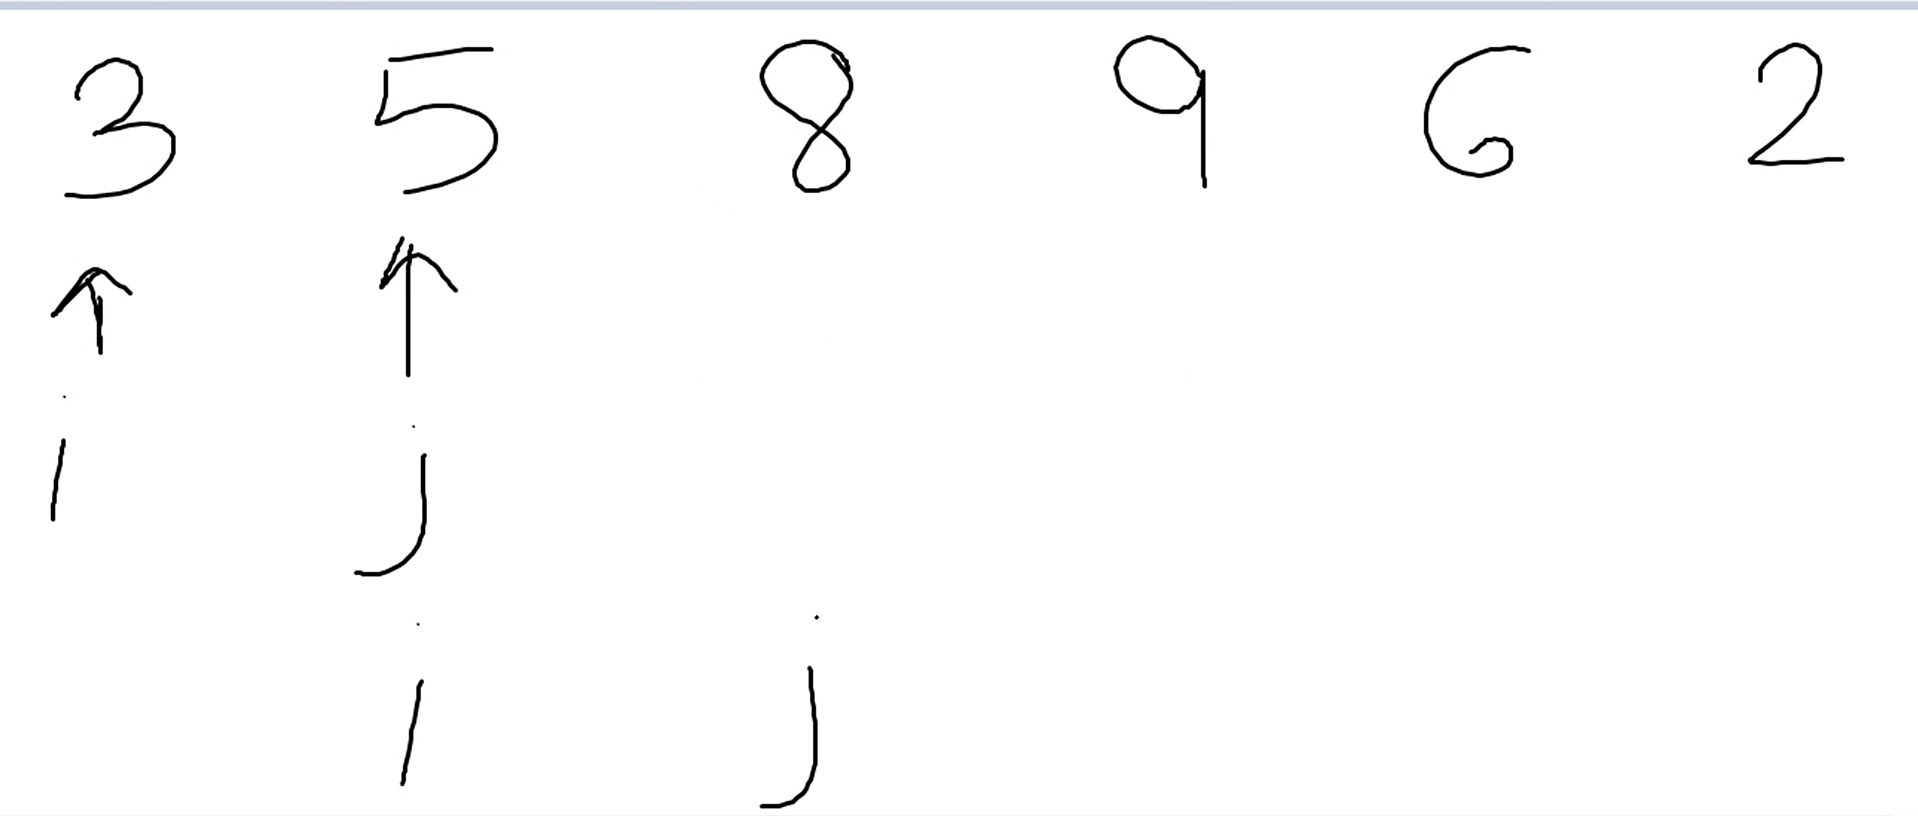 3 5 8 9 6 2
i j
i j